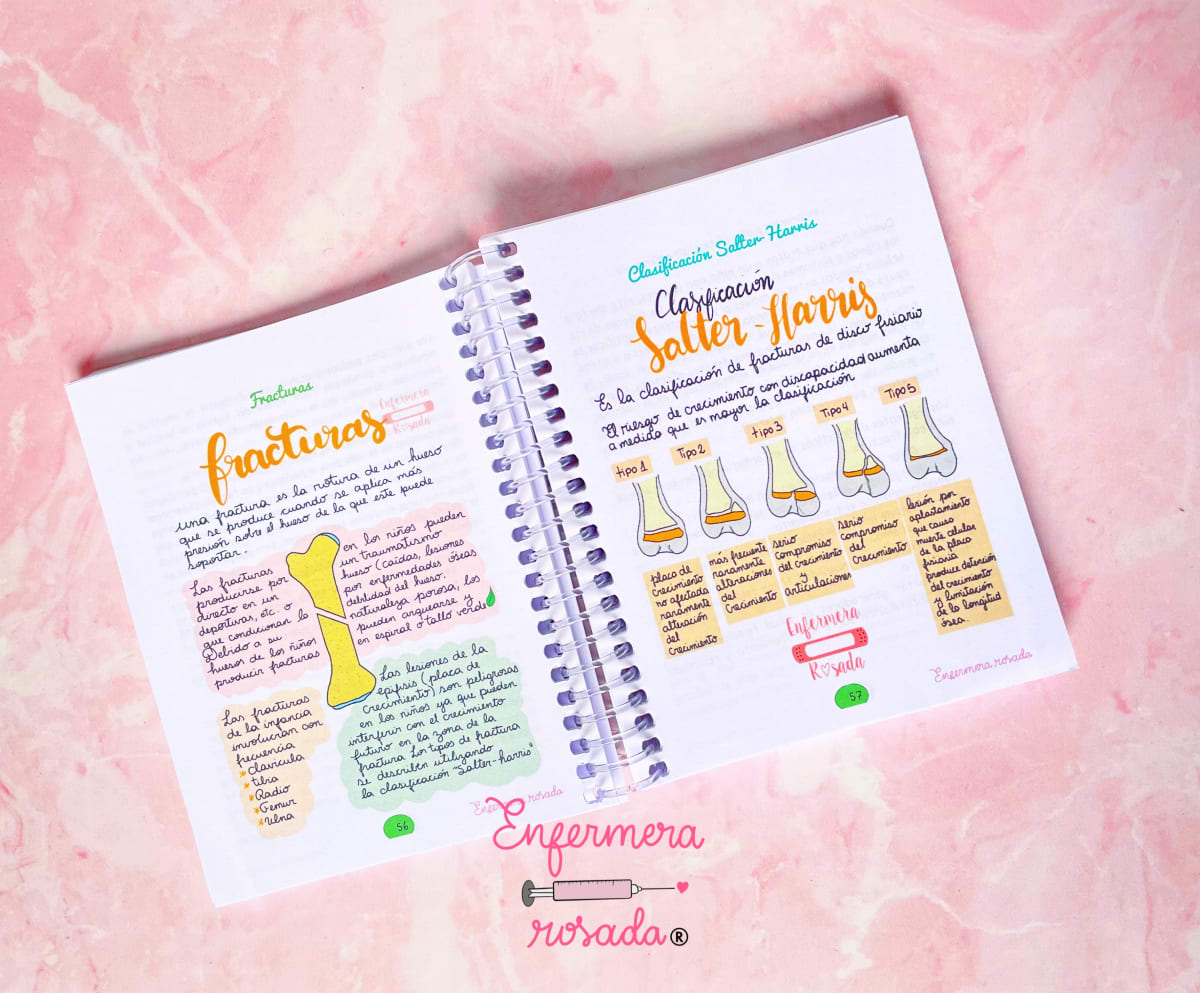 Fracturas
fracturas
Enfermera
Rosada
una fractura es la rotura de un hueso
que se produce cuando se aplica más
presión sobre el hueso de la que este puede
soportar.
Las fracturas
producirse por
directo en un
deportivas, etc. o
que condicionan la
Debido a su
huesos de los niños
producir fracturas
en los niños pueden
un traumatismo
hueso (caídas, lesiones
por enfermedades óseas
debilidad del hueso.
naturaleza porosa, los
pueden arquearse y
en espiral o tallo verde
Las fracturas
de la infancia
involucran con
frecuencia
Clavícula
tibia
Radio
Femur
Ulna
Las lesiones de la
epífisis (placa de
crecimiento) son peligrosas
en los niños ya que pueden
interferir con el crecimiento
futuro en la zona de la
fractura. Los tipos de fractura
se describen utilizando
la clasificación "Salter-harris"
Enfermera rosada
56
Clasificación Salter-Harris
Clasificación
Salter-Harris
Es la clasificación de fracturas de disco fisiario
El riesgo de crecimiento con discapacidad aumenta
a medida que es mayor la clasificación
tipo 1
Tipo 2
tipo 3
Tipo 4
Tipo 5
placa de
crecimiento
no afectada
raramente
alteración
del
crecimiento
más frecuente
raramente
alteraciones
del
crecimiento
serio
compromiso
del crecimiento
y
articulaciones
serio
compromiso
del
crecimiento
lesión por
aplastamiento
que causa
muerte celular
de la placa
fisiaria
produce detención
del crecimiento
y limitación
de la longitud
ósea.
Enfermera
Rosada
Enfermera rosada
57
Enfermera
rosada®